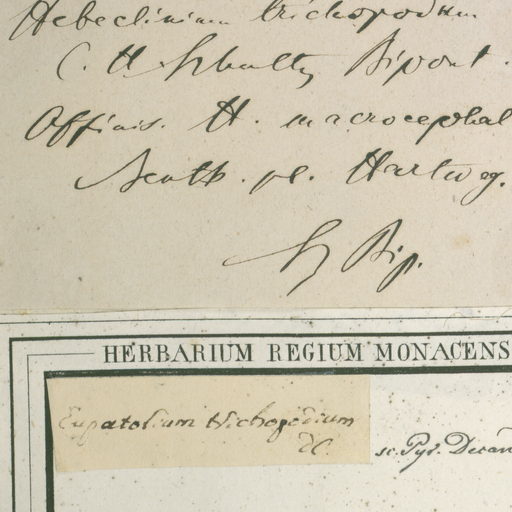 Hebeclinium trichopodum
C. H Schultz Bipont.
Affinis. H. macrocephal
Benth. pl. Hartweg.
Sz Bip.
HERBARIUM REGIUM MONACENS
Eupatorium trichopodium
DC.
sc. Pyr. Decan